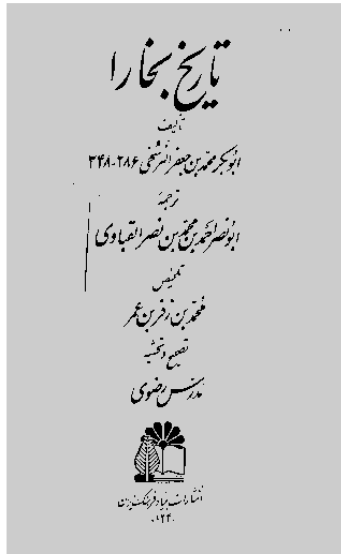 تاریخ بخارا
تألیف
ابوبکر محمد بن جعفر النرشخی ۲۸۶-۳۴۸
ترجمهٔ
ابونصر احمد بن محمد بن نصر القباوی
تلخیص
محمد بن زفر بن عمر
تصحیح و تحشیه
مدرس رضوی
انتشارات بنیاد فرهنگ ایران